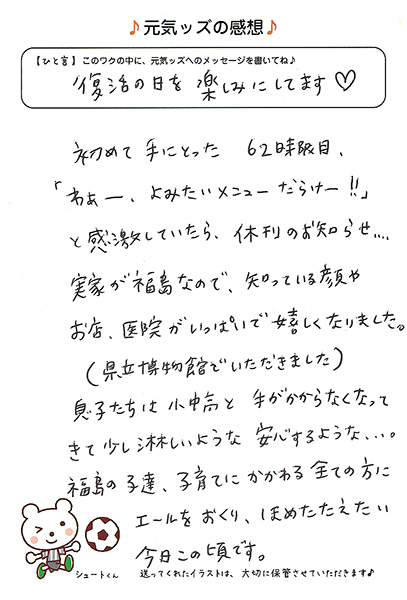 ♪元気ッズの感想♪
【ひと言】このワクの中に、元気ッズへのメッセージを書いてね♪
復活の日を楽しみにしてます♡
初めて手にとった 62時限目、
「わぁー、よみたいメニューだらけー!!」
と感激していたら、休刊のお知らせ…。
実家が福島なので、知っている顔や
お店、医院がいっぱいで嬉しくなりました。
(県立博物館でいただきました)
息子たちは小中高と手がかからなくなって
きて少し淋しいような安心するような…。
福島の子達、子育てにかかわる全ての方に
エールをおくり、ほめたたえたい
今日この頃です。
シュートくん 送ってくれたイラストは、大切に保管させていただきます♪